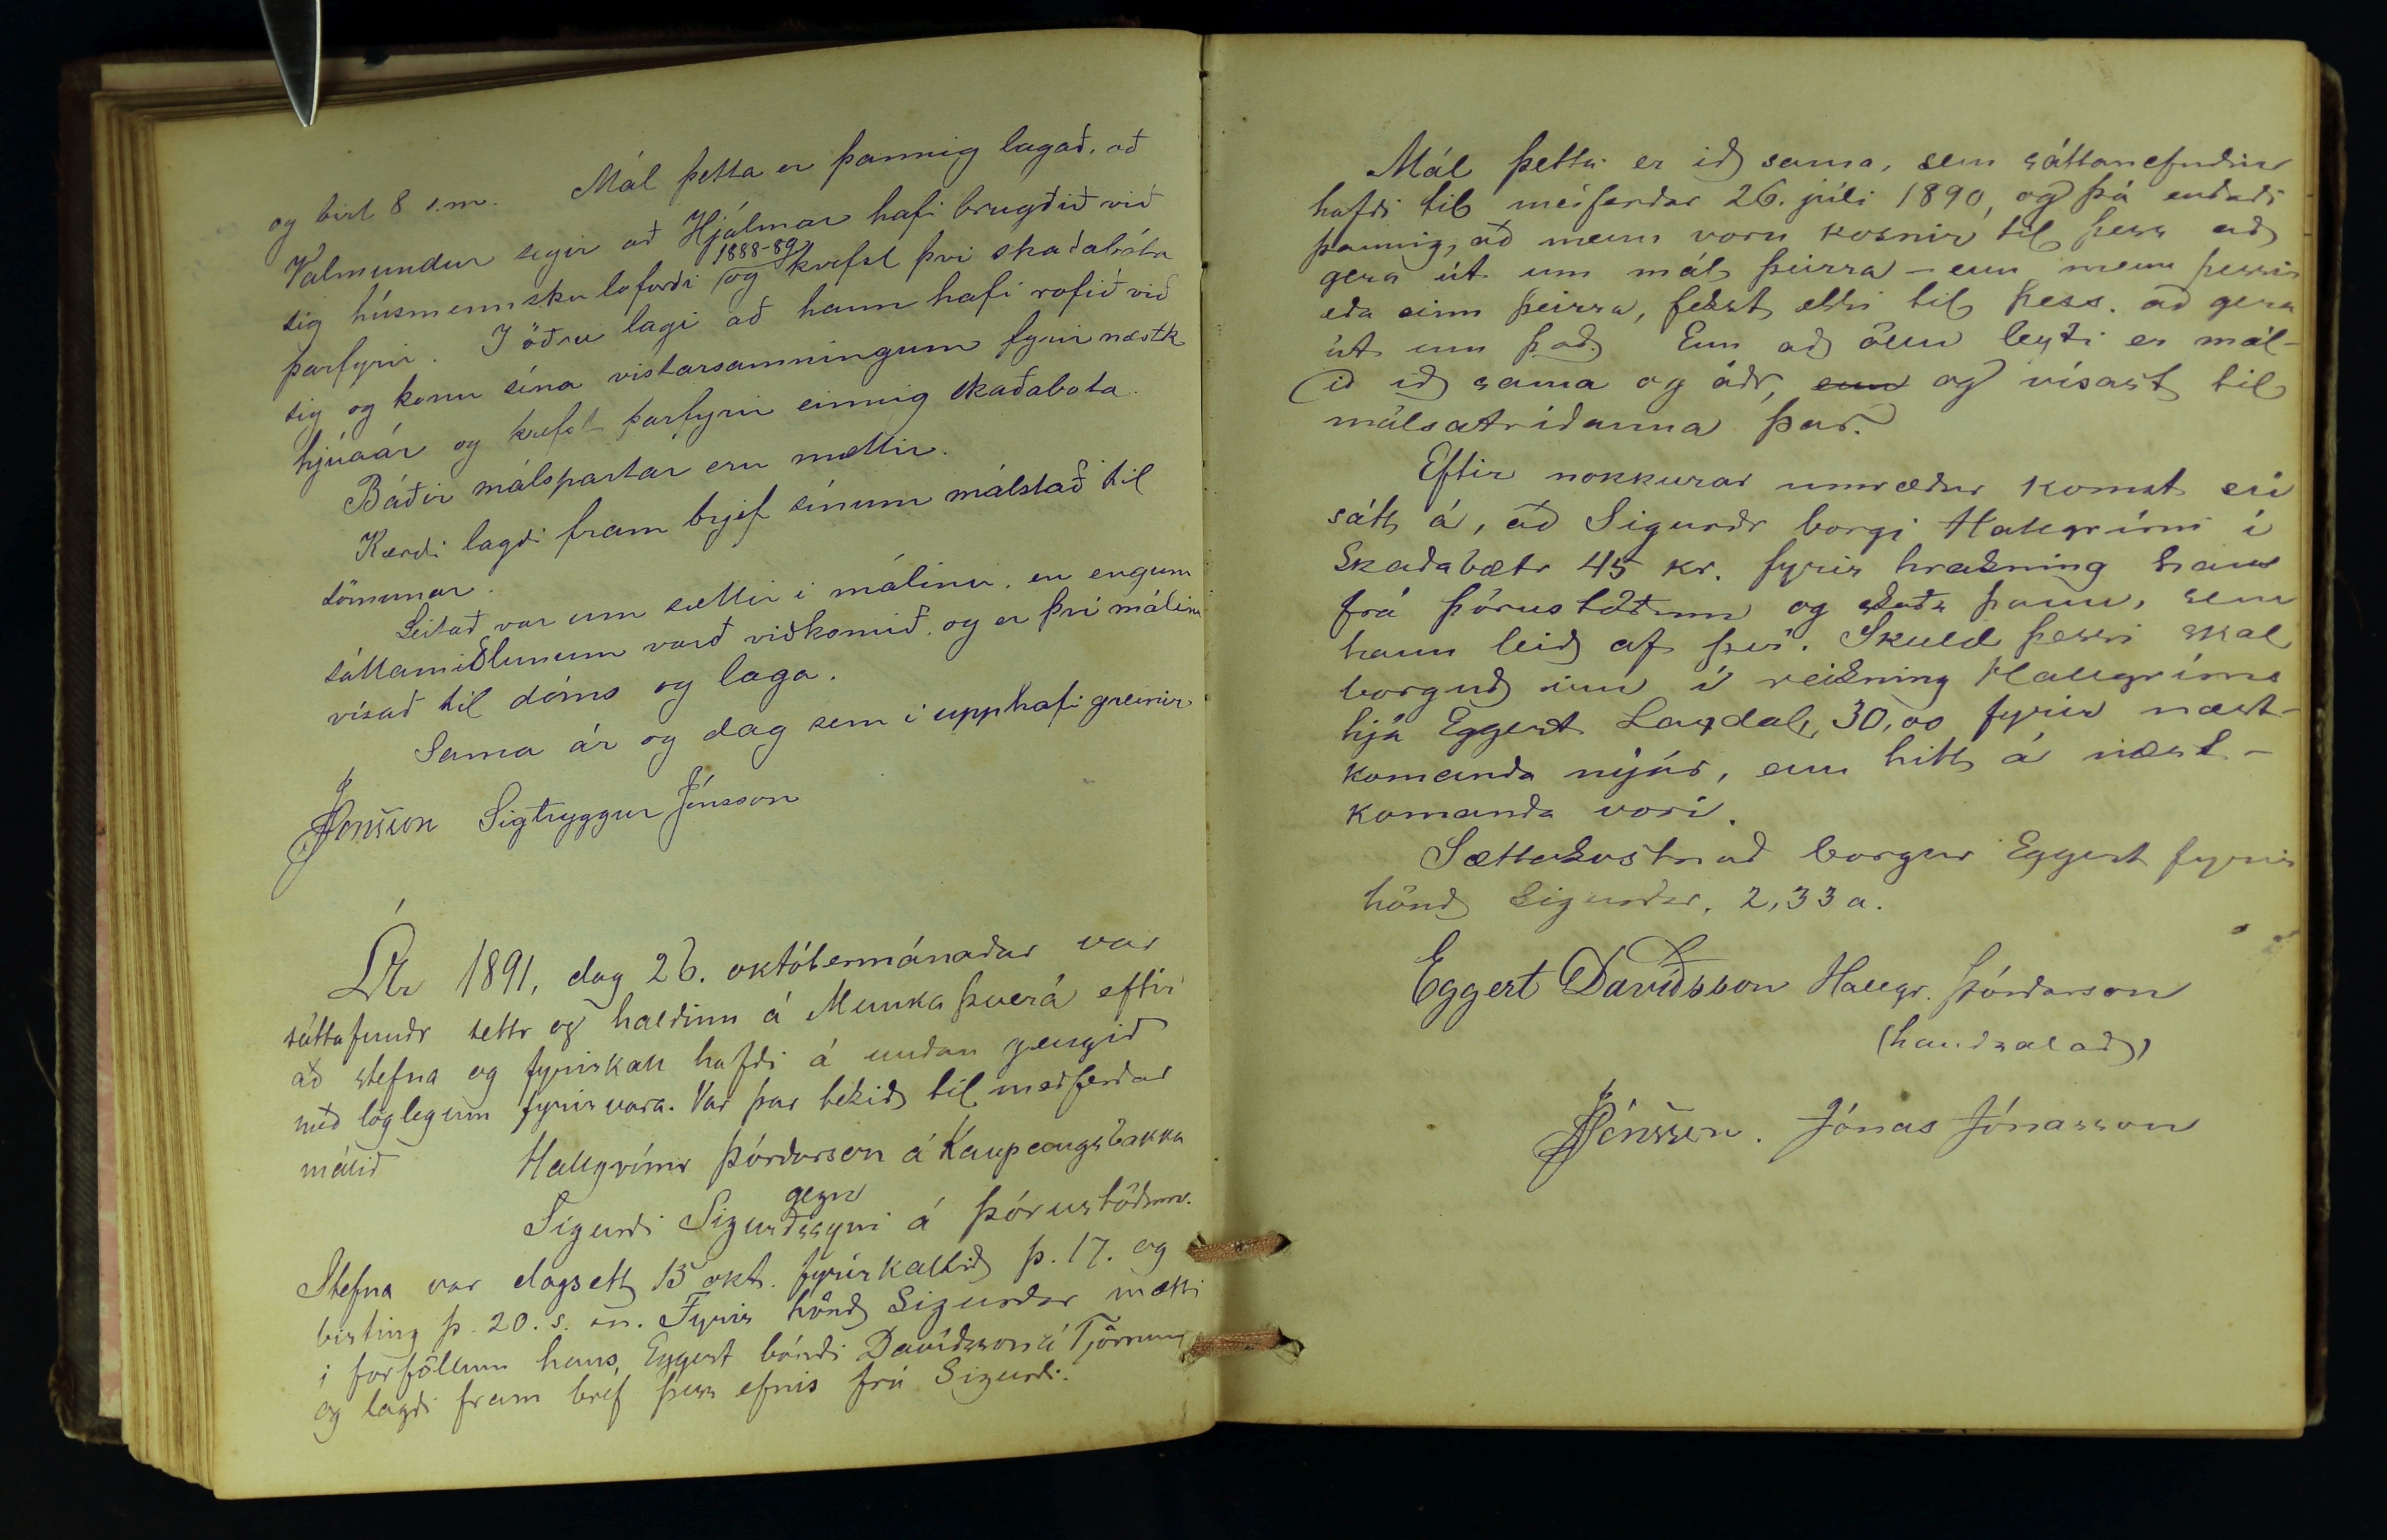 og birt 8 s.m. Mál þetta er þannig lagað, að
Valmundur segir að Hjálmar hafi brugðið við
sig húsmennsku loforði 1888-89 og krefst því skaðabóta
þarfyrir. I öðru lagi að hann hafi rofið við
sig og konu sína vistarsamningum fyrir næstk.
hjúaár og krefst þarfyrir einnig skaðabota.
Báðir málspartar eru mættir.
Kærði lagði fram brjef sínum málstað til
sönnunar.
Leitað var um sættir i málinu, en engum
sáttamiðlunum varð viðkomið, og er því málinu
vísað til dóms og laga.
Sama ár og dag sem i upphafi greinir.
JJónsson Sigtryggur Jónsson
Ár 1891, dag 26. októbermánaðar var
sáttafundr settr og haldinn á Munkaþverá eftir
að stefna og fyrirkall hafði á undan gengið
með löglegum fyrirvara. Var þar tekið til meðferðar
málið
Hallgrímr Þórðarson á Kaupangsbakka
gegn
Sigurði Sigurðssyni á Þórustöðum.
Stefna var dagsett 15 okt. fyrirkallið þ. 17. og
birting þ. 20. s. m. Fyrir hönd Sigurðar mætti
i forföllum hans, Eggert bóndi Davíðsson á Tjörnum
og lagði fram bréf þess efnis frá Sigurði.
Mál þetta er ið sama, sem sáttanefndin
hafði til meðferðar 26. júli 1890, og þá endaði
þannig, að menn voru kosnir til þess að
gera út um mál þeirra - enn menn þessir
eða einn þeirra, fekst ekki til þess. að gera
út um það. Enn að öllu leyti er mál-
ið ið sama og áðr, enn og vísast til
málsatriðanna þar.
Eftir nokkurar umræður komst sú
sátt á, að Sigurðr borgi Hallgrími í
Skaðabætr 45 kr. fyrir hrakning hans
frá Þórustöðum og skaða þann, sem
hann leið af því. Skuld þessi skal
borguð inn í reikning Hallgríms
hjá Eggert Laxdal, 30,00 fyrir næst-
komanda nýár, enn hitt á næst-
komanda vori.
Sættakostnað borgar Eggert fyrir
hönd Sigurðar, 2,33 a.
Eggert Davíðsson Hallgr. Þórðarson
(handsalað)
JJónsson. Jónas Jónasson